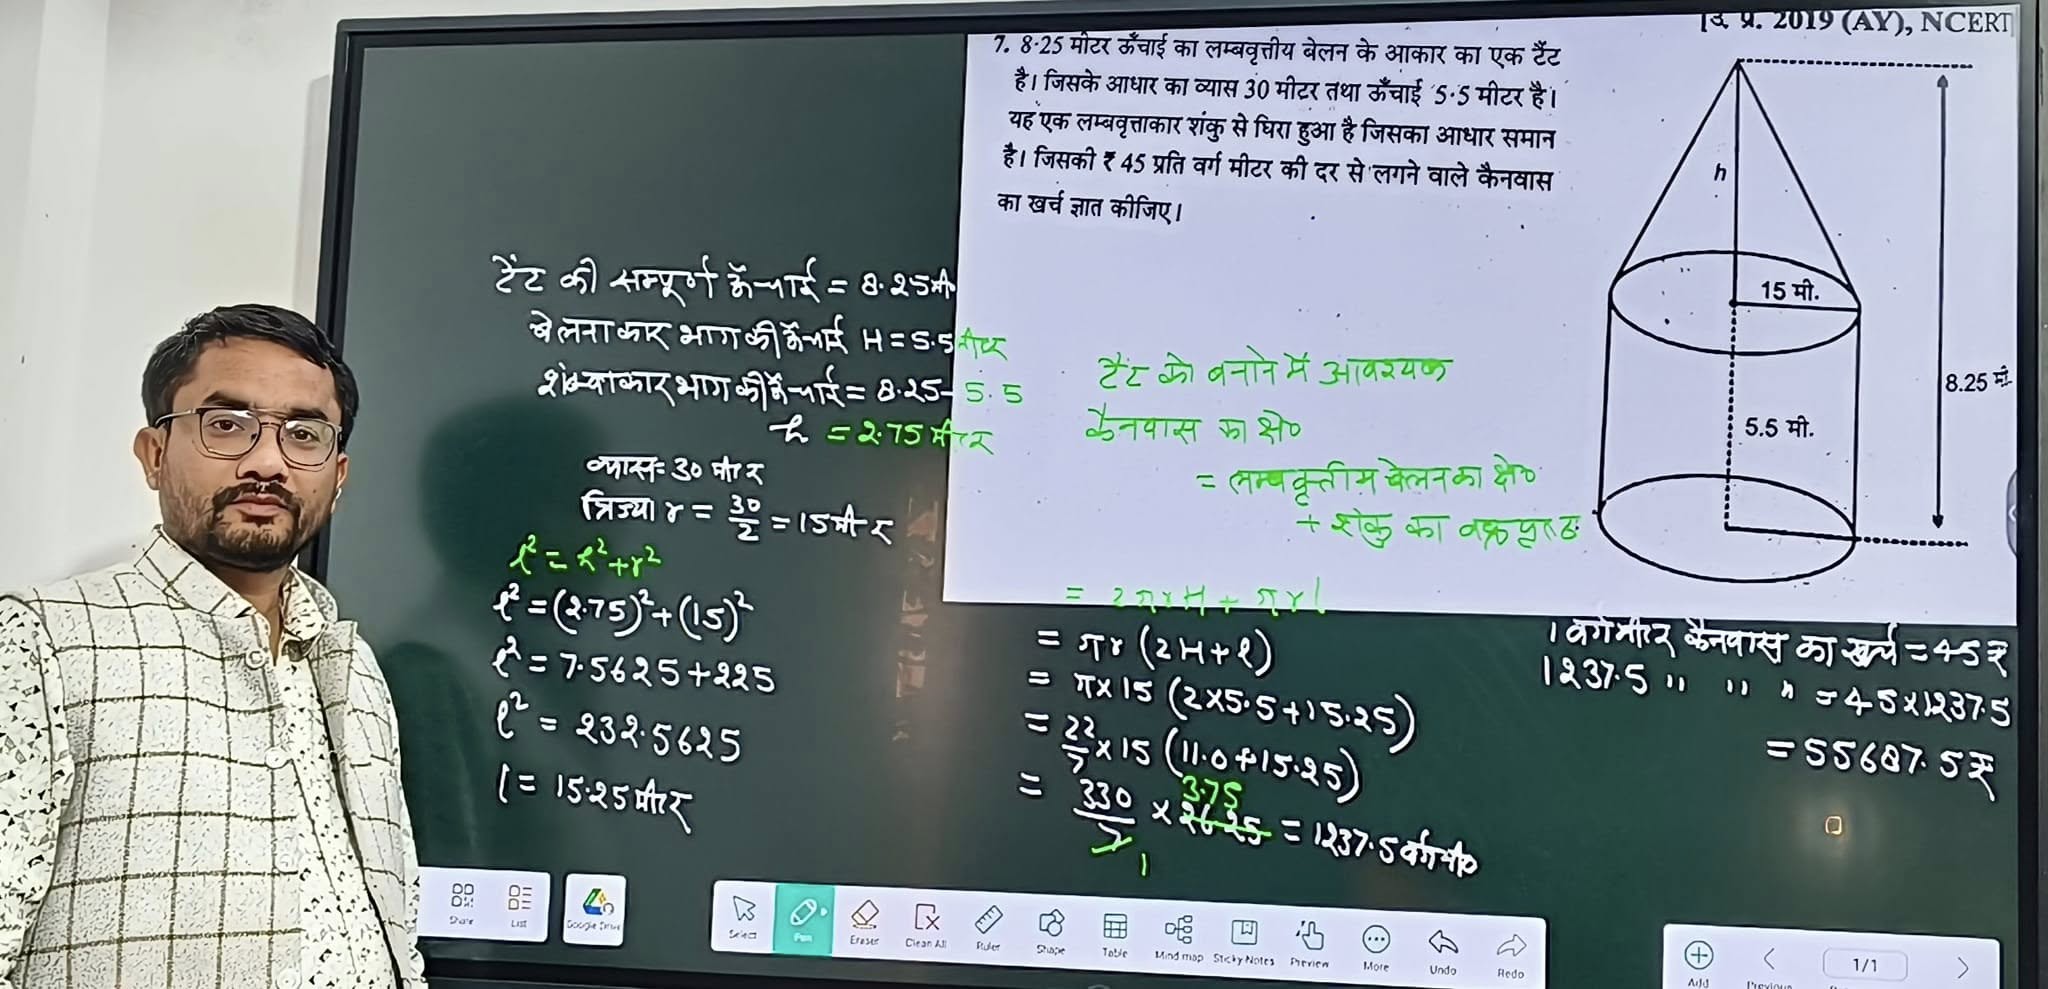 [उ. प्र. 2019 (AY), NCERT]
7. 8·25 मीटर ऊँचाई का लम्बवृत्तीय बेलन के आकार का एक टैंट
है। जिसके आधार का व्यास 30 मीटर तथा ऊँचाई 5·5 मीटर है।
यह एक लम्बवृत्ताकार शंकु से घिरा हुआ है जिसका आधार समान
है। जिसकी ₹ 45 प्रति वर्ग मीटर की दर से लगने वाले कैनवास
का खर्च ज्ञात कीजिए।
h
15 मी.
8.25 मी.
5.5 मी.
टेंट की सम्पूर्ण ऊँचाई = 8.25 मी.
बेलनाकार भाग की ऊँचाई H = 5.5 मीटर
शंक्वाकार भाग की ऊँचाई = 8.25 - 5.5
h = 2.75 मीटर
व्यास = 30 मीटर
त्रिज्या r = 30/2 = 15 मीटर
l² = h² + r²
l² = (2.75)² + (15)²
l² = 7.5625 + 225
l² = 232.5625
l = 15.25 मीटर
टैंट को बनाने में आवश्यक
कैनवास का क्षे०
= लम्बवृत्तीय बेलन का क्षे०
+ शंकु का वक्रपृष्ठ
= 2πrH + πrl
= πr (2H + l)
= π × 15 (2 × 5.5 + 15.25)
= 22/7 × 15 (11.0 + 15.25)
3.75
= 330/7 × 26.25 = 1237.5 वर्ग मी०
1
1 वर्ग मीटर कैनवास का खर्च = 45 ₹
1237.5 " " " = 45 × 1237.5
= 55687.5 ₹
Share
List
Google Drive
Select
Pen
Eraser
Clean All
Ruler
Shape
Table
Mind map
Sticky Notes
Preview
More
Undo
Redo
Add
Previous
1/1